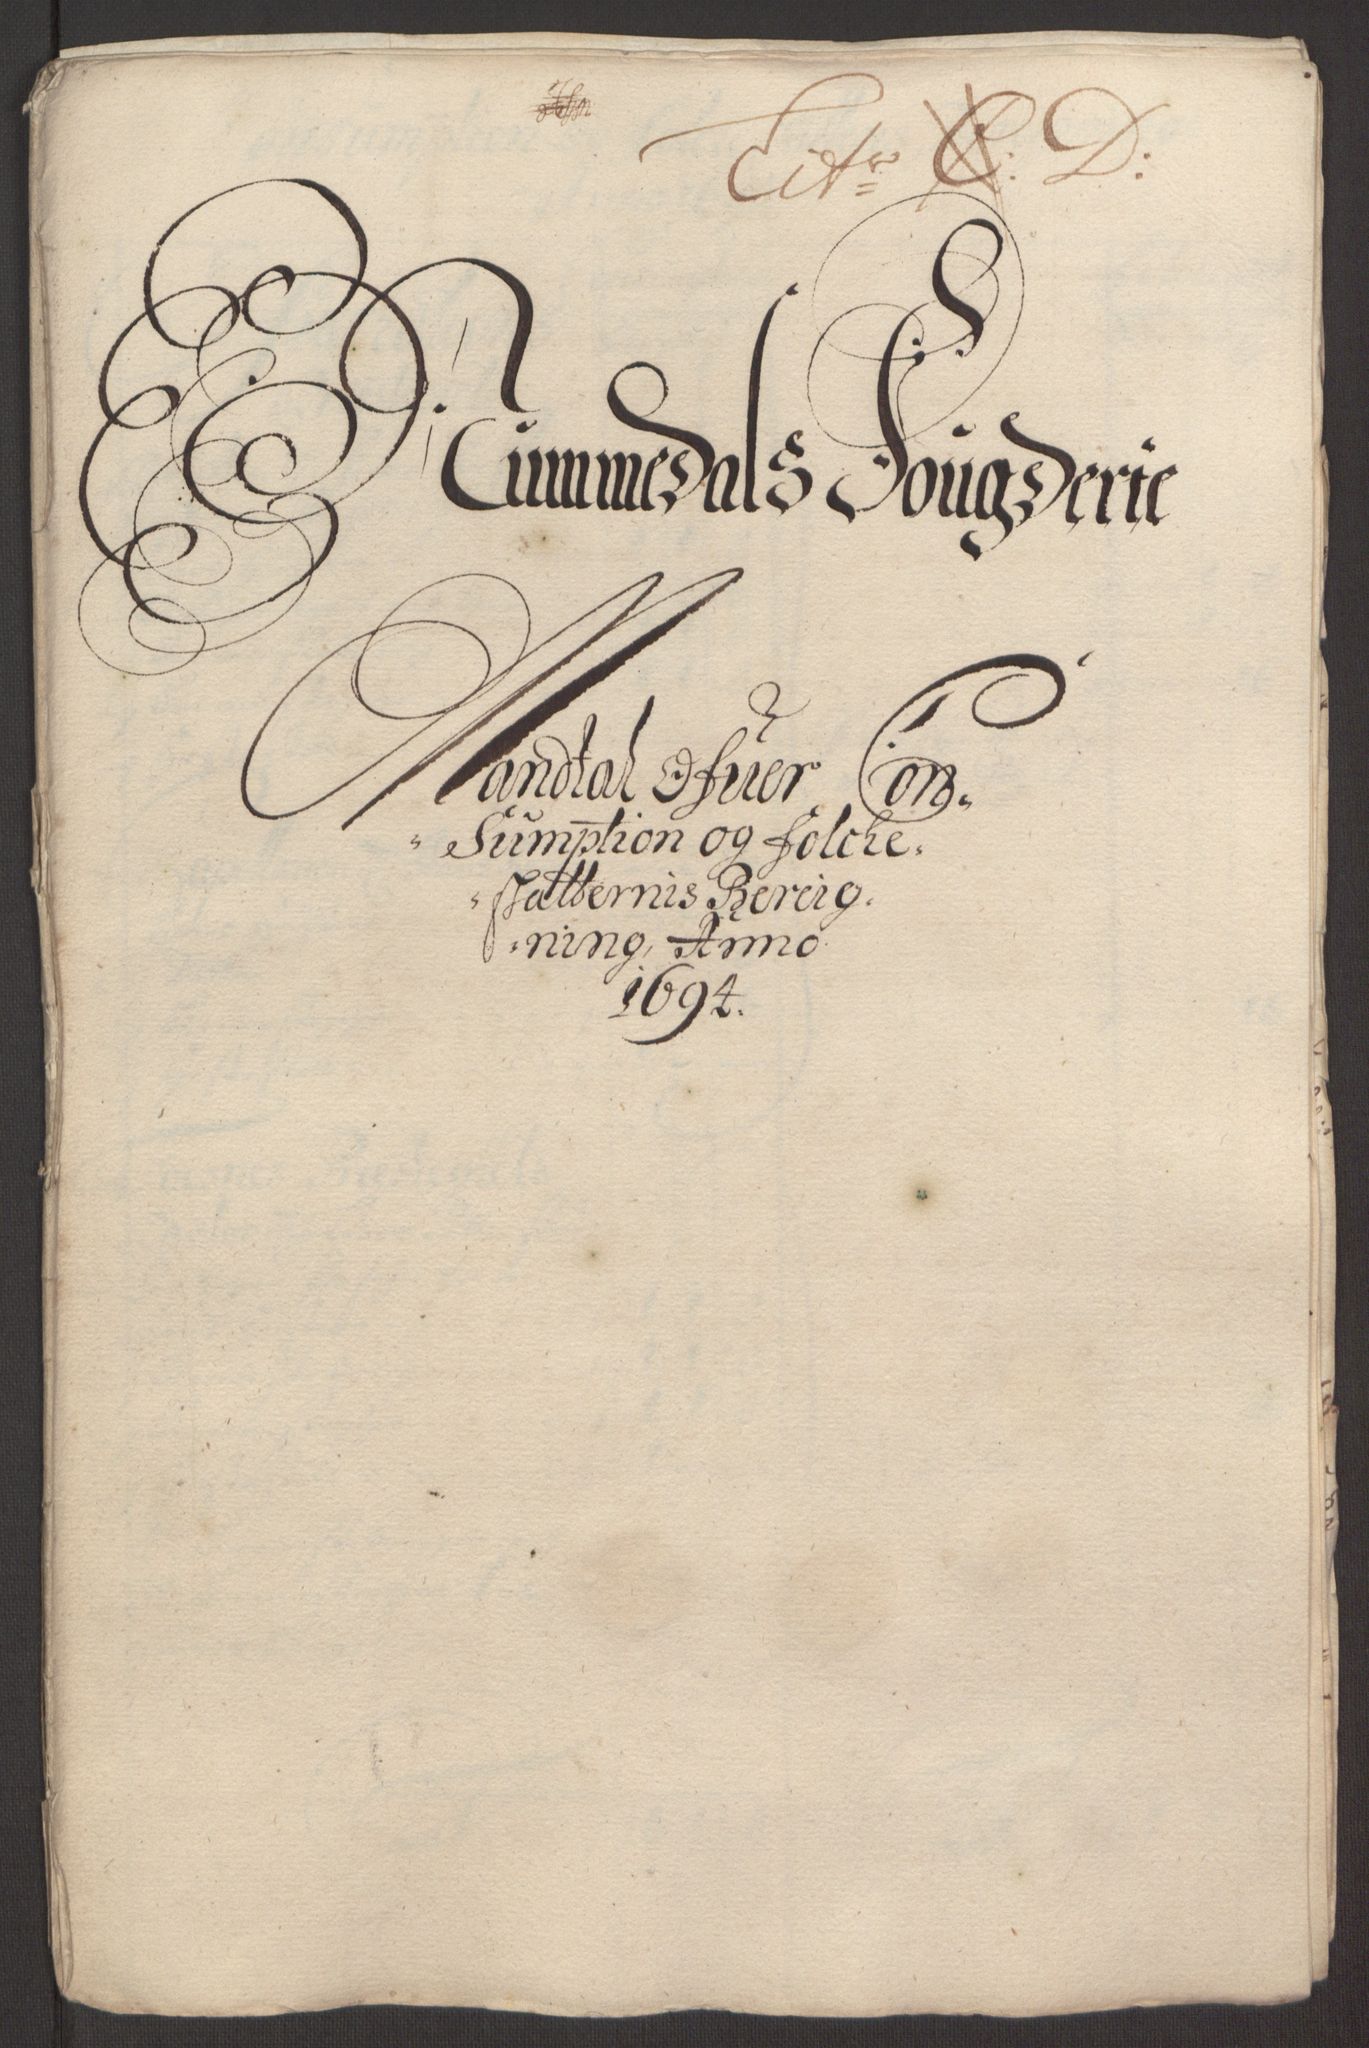 Litr C: D:
Nummedals Fougderie
Mandtal Ofuer Con-
-Sumption og folche-
-skatternis Bereig-
-ning, Anno
1694.